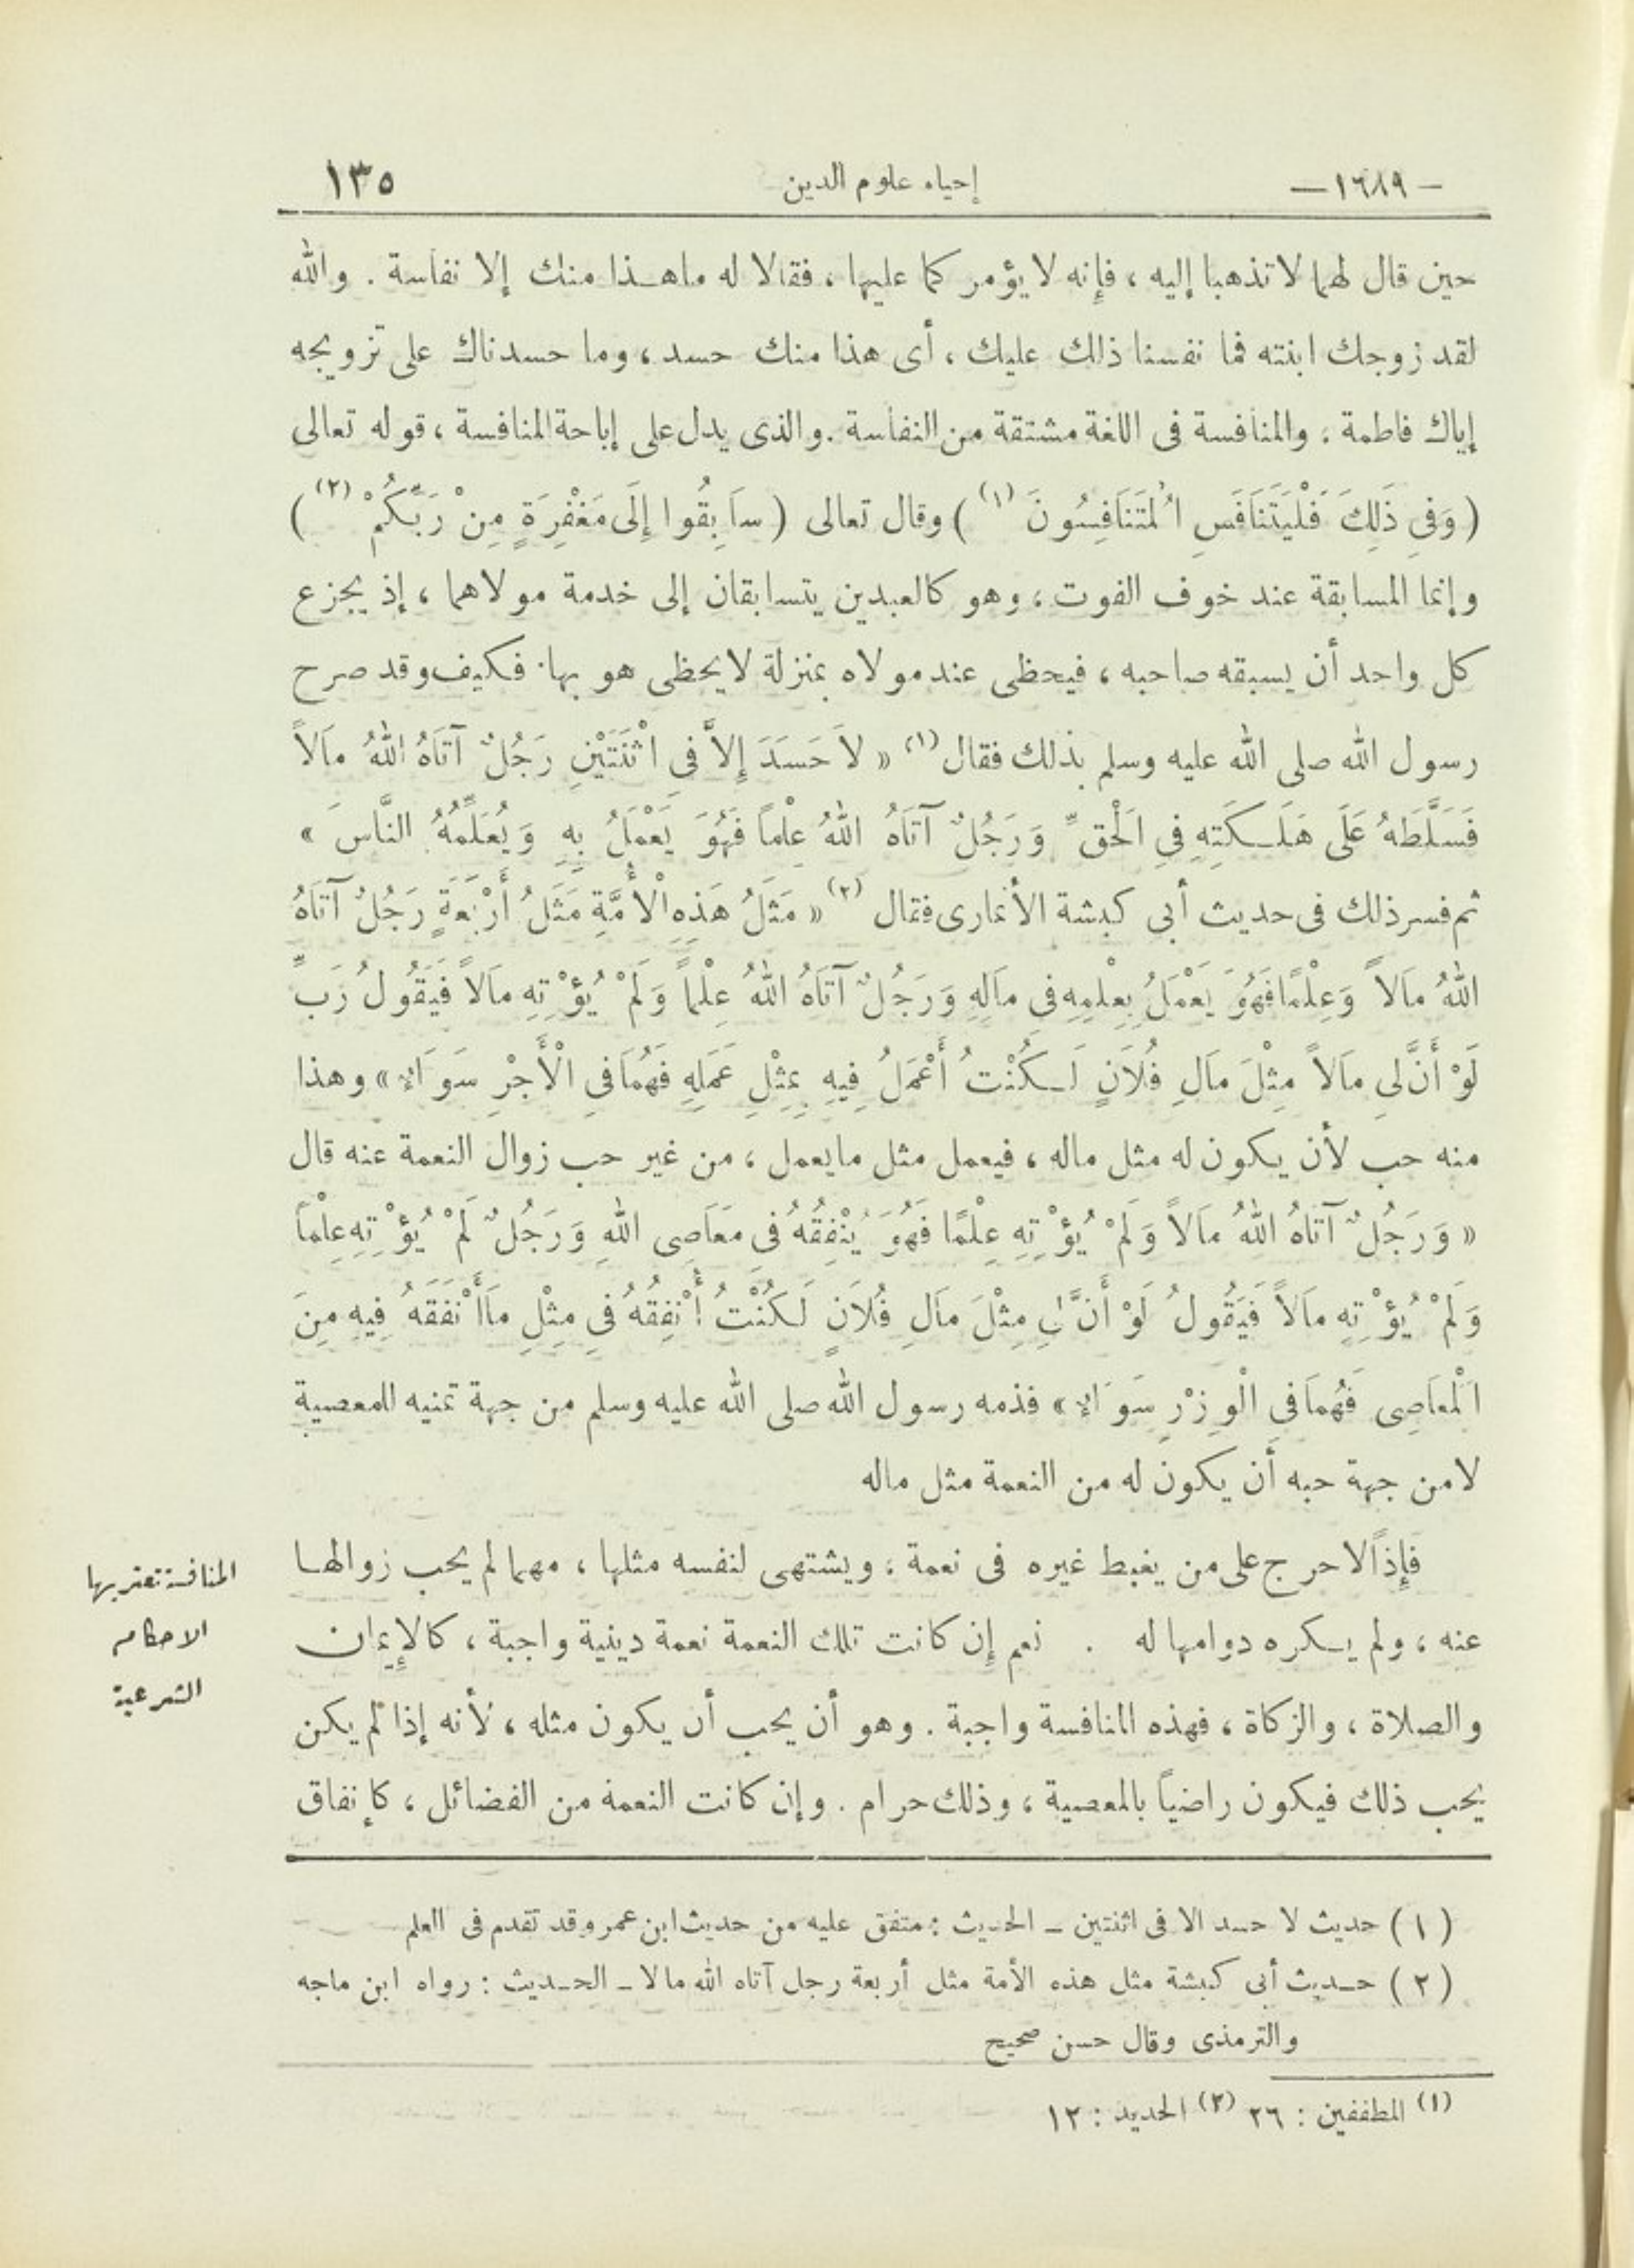 — ١٦٨٩ — إحياء علوم الدين ١٣٥
حين قال لهما لا تذهبا إليه ، فإنه لا يؤمركما عليها ، فقالا له ما هـذا منك إلا نفاسة . والله
لقد زوجك ابنته فما نفسنا ذلك عليك ، أى هذا منك حسد ، وما حسدناك على تزويجه
إياك فاطمة . والمنافسة فى اللغة مشتقة من النفاسة . والذى يدل على إباحة المنافسة ، قوله تعالى
( وَفِى ذَلِكَ فَلْيَتَنَافَسِ الْمُتَنَافِسُونَ (١) ) وقال تعالى ( سَابِقُوا إِلَى مَغْفِرَةٍ مِنْ رَبِّكُمْ (٢) )
وإنما المسابقة عند خوف الفوت ، وهو كالعبدين يتسابقان إلى خدمة مولاهما ، إذ يجزع
كل واحد أن يسبقه صاحبه ، فيحظى عند مولاه بمنزلة لا يحظى هو بها . فكيف وقد صرح
رسول الله صلى الله عليه وسلم بذلك فقال (١) « لَا حَسَدَ إِلَّا فِى اثْنَتَيْنِ رَجُلٌ آتَاهُ اللهُ مَالاً
فَسَلَّطَهُ عَلَى هَلَـكَتِهِ فِى الْحَقِّ وَرَجُلٌ آتَاهُ اللهُ عِلْماً فَهُوَ يَعْمَلُ بِهِ وَيُعَلِّمُهُ النَّاسَ »
ثم فسر ذلك فى حديث أبى كبشة الأنمارى فقال (٢) « مَثَلُ هَذِهِ الْأُمَّةِ مَثَلُ أَرْبَعَةٍ رَجُلٌ آتَاهُ
اللهُ مَالاً وَعِلْمًا فَهُوَ يَعْمَلُ بِعِلْمِهِ فِى مَالِهِ وَرَجُلٌ آتَاهُ اللهُ عِلْماً وَلَمْ يُؤْتِهِ مَالاً فَيَقُولُ رَبِّ
لَوْ أَنَّ لِى مَالاً مِثْلَ مَالِ فُلَانٍ لَـكُنْتُ أَعْمَلُ فِيهِ بِمِثْلِ عَمَلِهِ فَهُمَا فِى الْأَجْرِ سَوَاءٌ » وهذا
منه حب لأن يكون له مثل ماله ، فيعمل مثل ما يعمل ، من غير حب زوال النعمة عنه قال
« وَرَجُلٌ آتَاهُ اللهُ مَالاً وَلَمْ يُؤْتِهِ عِلْمًا فَهُوَ يُنْفِقُهُ فِى مَعَاصِى اللهِ وَرَجُلٌ لَمْ يُؤْتِهِ عِلْماً
وَلَمْ يُؤْتِهِ مَالاً فَيَقُولُ لَوْ أَنَّ لِى مِثْلَ مَالِ فُلَانٍ لَكُنْتُ أُنْفِقُهُ فِى مِثْلِ مَا أَنْفَقَهُ فِيهِ مِنَ
الْمَعَاصِى فَهُمَا فِى الْوِزْرِ سَوَاءٌ » فذمه رسول الله صلى الله عليه وسلم من جهة تمنيه للمعصية
لا من جهة حبه أن يكون له من النعمة مثل ماله
فإذاً لا حرج على من يغبط غيره فى نعمة ، ويشتهى لنفسه مثلها ، مهما لم يحب زوالهـا
عنه ، ولم يـكره دوامها له . نعم إن كانت تلك النعمة نعمة دينية واجبة ، كالإيمان
والصلاة ، والزكاة ، فهذه المنافسة واجبة . وهو أن يحب أن يكون مثله ، لأنه إذا لم يكن
يحب ذلك فيكون راضياً بالمعصية ، وذلك حرام . وإن كانت النعمة من الفضائل ، كإنفاق
المنافسة تعتريها
الاحكام
الشرعية
( ١ ) حديث لا حسد الا فى اثنتين ـ الحديث : متفق عليه من حديث ابن عمر وقد تقدم فى العلم
( ٢ ) حـديث أبى كبشة مثل هذه الأمة مثل أربعة رجل آتاه الله مالا ـ الحـديث : رواه ابن ماجه
والترمذى وقال حسن صحيح
(١) المطففين : ٢٦ (٢) الحديد : ١٢